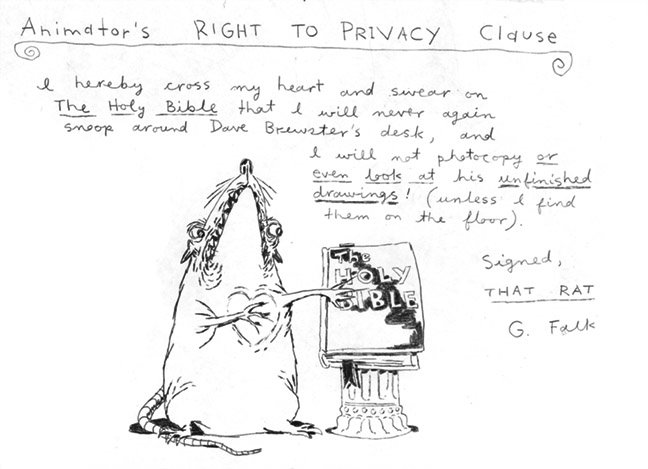 Animator's RIGHT TO PRIVACY Clause
I hereby cross my heart and swear on
The Holy Bible that I will never again
snoop around Dave Brewster's desk, and
I will not photocopy or
even look at his unfinished
drawings! (unless I find
them on the floor).
Signed,
THAT RAT
G. Falk
The
HOLY
BIBLE